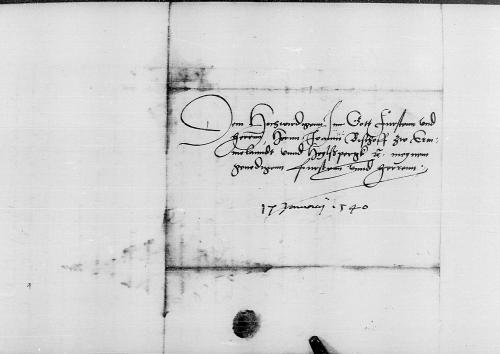 Dem Hochwirdigenn Jn Gott Fursten und
Herrn, Hern Joanni Bischoff zw Erm-
elanndt unnd Heylspergk etc. meynem
genedigem Fursten unnd Herrenn.
17 Januarij 1540